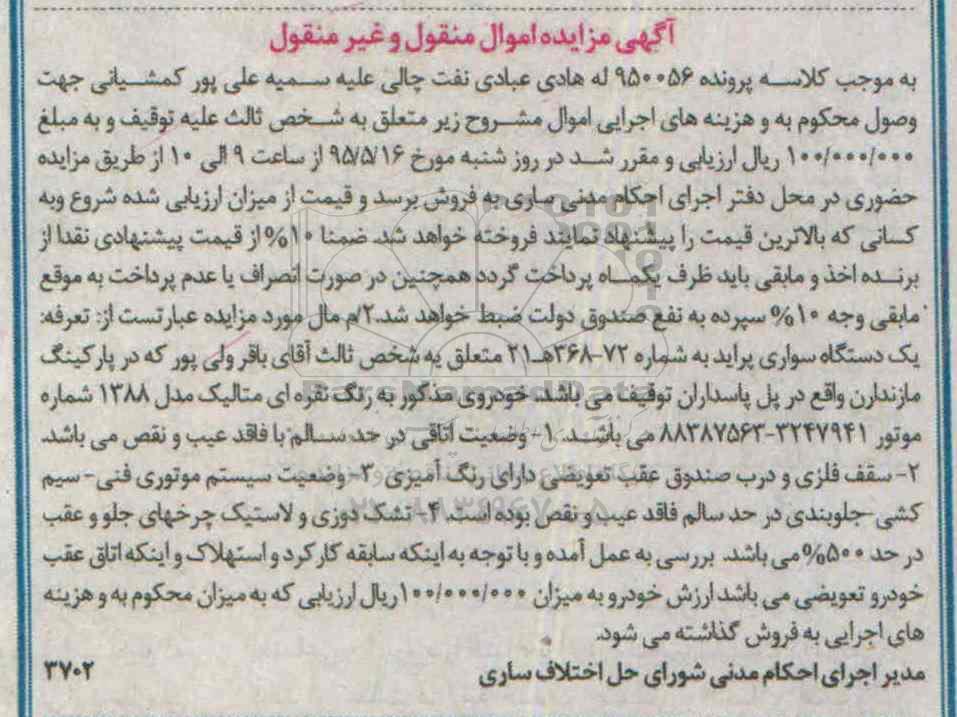 آگهی مزایده اموال منقول و غیر منقول
به موجب کلاسه پرونده ۹۵۰۰۵۶ له هادی عبادی نفت چالی علیه سمیه علی پور کمشیانی جهت
وصول محکوم به و هزینه های اجرایی اموال مشروح زیر متعلق به شخص ثالث علیه توقیف و به مبلغ
۱۰۰/۰۰۰/۰۰۰ ریال ارزیابی و مقرر شد در روز شنبه مورخ ۹۵/۵/۱۶ از ساعت ۹ الی ۱۰ از طریق مزایده
حضوری در محل دفتر اجرای احکام مدنی ساری به فروش برسد و قیمت از میزان ارزیابی شده شروع وبه
کسانی که بالاترین قیمت را پیشنهاد نمایند فروخته خواهد شد. ضمنا ۱۰% از قیمت پیشنهادی نقدا از
برنده اخذ و مابقی باید ظرف یکماه پرداخت گردد همچنین در صورت انصراف یا عدم پرداخت به موقع
مابقی وجه ۱۰% سپرده به نفع صندوق دولت ضبط خواهد شد.۲/م مال مورد مزایده عبارتست از: تعرفه:
یک دستگاه سواری پراید به شماره ۷۲-۳۶۸هـ۲۱ متعلق به شخص ثالث آقای باقر ولی پور که در پارکینگ
مازندارن واقع در پل پاسداران توقیف می باشد. خودروی مذکور به رنگ نقره ای متالیک مدل ۱۳۸۸ شماره
موتور ۳۲۴۷۹۴۱-۸۸۳۸۷۵۶۳ می باشد. ۱- وضعیت اتاقی در حد سالم با فاقد عیب و نقص می باشد.
۲- سقف فلزی و درب صندوق عقب تعویضی دارای رنگ آمیزی ۳- وضعیت سیستم موتوری فنی- سیم
کشی-جلوبندی در حد سالم فاقد عیب و نقص بوده است. ۴- تشک دوزی و لاستیک چرخهای جلو و عقب
در حد ۵۰۰% می باشد. بررسی به عمل آمده و با توجه به اینکه سابقه کارکرد و استهلاک و اینکه اتاق عقب
خودرو تعویضی می باشد ارزش خودرو به میزان ۱۰۰/۰۰۰/۰۰۰ ریال ارزیابی که به میزان محکوم به و هزینه
های اجرایی به فروش گذاشته می شود.
مدیر اجرای احکام مدنی شورای حل اختلاف ساری ۳۷۰۲
ParsNamadData